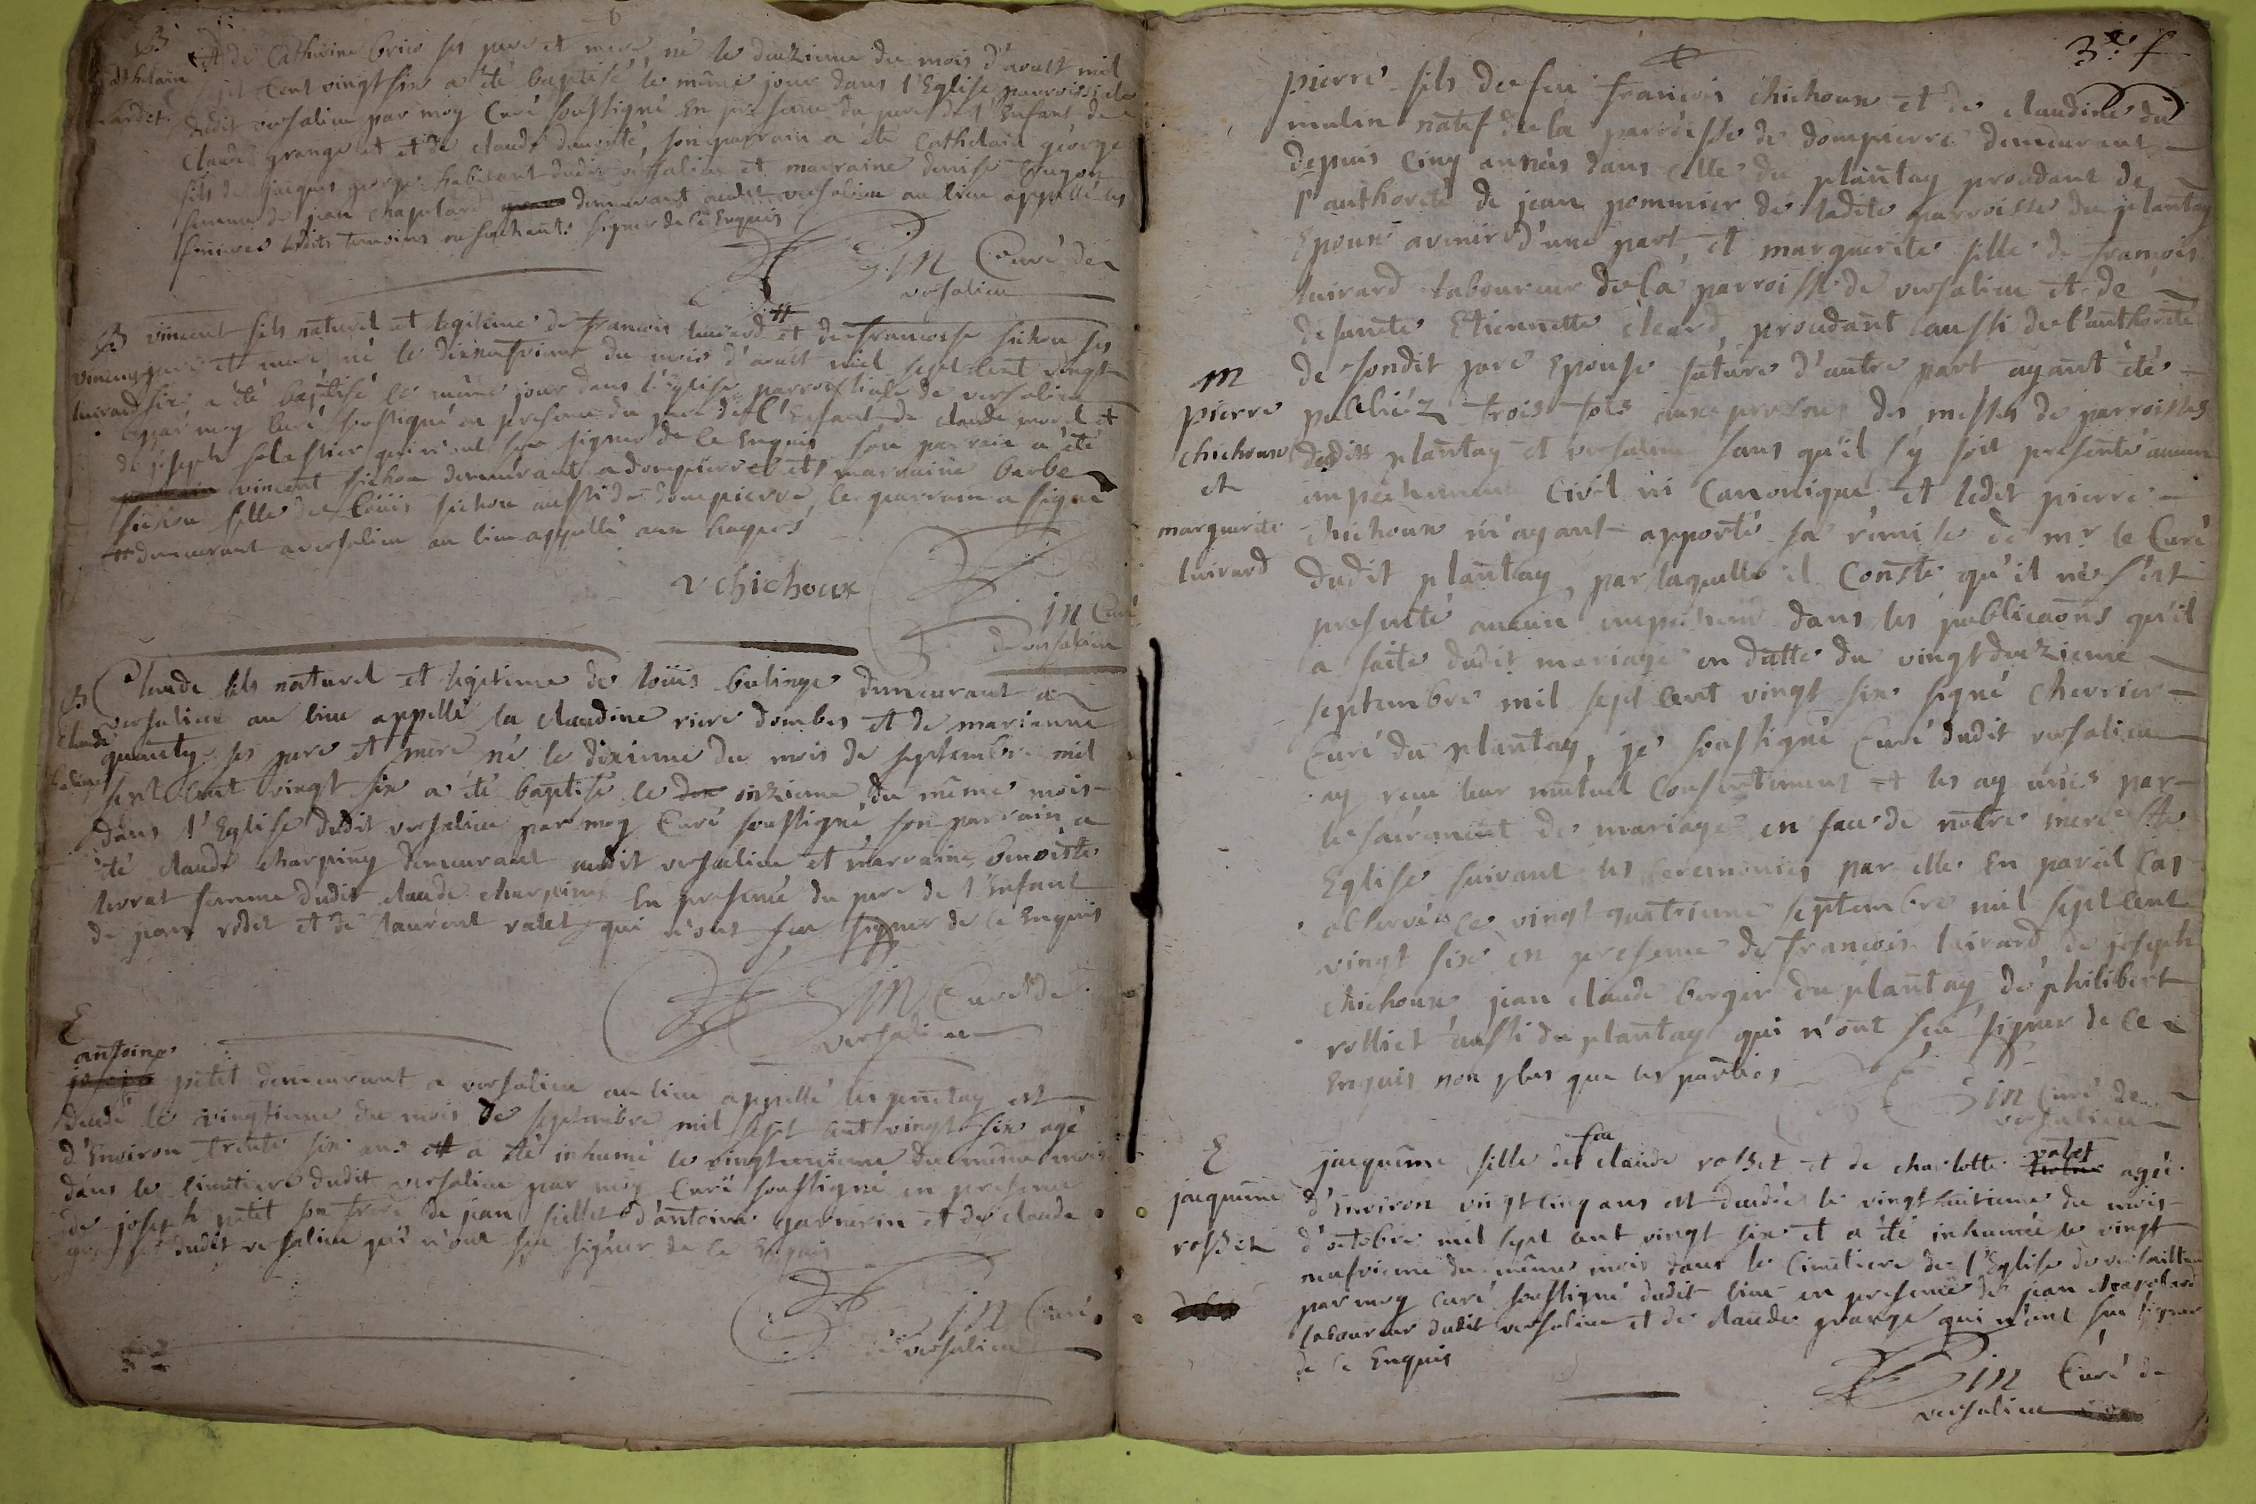 B
et de Catherine brico ses pere et mere, né le douzieme du mois d'aoust mil
sept Cent vingt six a été baptisé le même jour dans l'Eglise parroissiale
dudit versalieu par moy Curé soussigné En presence du pere de l'Enfant de
Claude grange et de claude son parrain a été Catherin george
fils de jacques george habitant dudit versalieu et marraine denise
femme de jean chapelard demeurant audit versalieu au lieu appellé les
lesdits temoins signer de ce Enquis
Curé de
versalieu
B
vincent
luirard
vincent fils naturel et legitime de francois luirard # et de francoise sichou ses
pere et mere né le dixneufvieme du mois d'aoust mil sept Cent vingt
six a été baptisé le même jour dans l'Eglise parroissiale de versalieu
par moy Curé soussigné en presence du pere de l'Enfant de claude morel et
de joseph qui n'ont sçu signer de ce Enquis son parrain a été
vincent sichou demeurant a dompierre et marraine barbe
sichou fille de Louis sichou aussi de dompierre, le parrain a signé
# demeurant a versalieu au lieu appellé aux
v chichoux
Curé
de versalieu
B
Claude
Claude fils naturel et legitime de loüis bulinge demeurant a
versalieu au lieu appellé la claudine riere dombes et de marianne
ses pere et mere né le dixieme du mois de septembre mil
sept Cent vingt six a été baptisé le onzieme du même mois
dans l'Eglise dudit versalieu par moy Curé soussigné, son parrain a
été claude charpiny demeurant audit versalieu et marraine benoiste
femme dudit claude charpiny En presence du pere de l'Enfant
de jean rodet et de laurent valet qui n'ont sçu signer de ce Enquis
Curé de
versalieu
E
antoine
petit demeurant a versalieu au lieu appellé est
decedé le vingtieme du mois de septembre mil sept cent vingt six agé
d'Environ trente six ans et a été inhumé le du même mois
dans le Cimetiere dudit versalieu par moy Curé soussigné en presence
de joseph petit son frere de jean d'antoine garnerin et de claude
dudit versalieu qui n'ont sçu signer de ce Enquis
Curé
de versalieu
3e f
pierre fils de feu francois chichoux et de claudine du
mulin natif de la parroisse de dompierre demeurant
depuis Cinq années dans celle du plantay procedant de
l'authorité de jean pommier de ladite parroisse du plantay
Epoux avenir d'une part, et marguerite fille de francois
luirard laboureur de la parroisse de versalieu et de
defuncte Etiennette procedant aussi de l'authorité
de sondit pere Epouse future d'autre part ayant été
M
pierre
chichoux
et
marguerite
luirard
publiéz trois fois aux prosnes des messes de parroisses
desdits plantay et versalieu sans qu'il s'y soit presenté aucun
impechement Civil ni Canonique et ledit pierre
chichoux m'ayant apporté sa remise de mr le Curé
dudit plantay, par laquelle il Conste qu'il ne s'est
presenté aucun dans les publicaons qu'il
a faite dudit mariage en datte du vingt deuzieme
septembre mil sept Cent vingt six signé Chevrier
Curé du plantay, je soussigné Curé dudit versalieu
ay receu leur mutuel Consentement et les ay unies par
le sacrement de mariage en face de notre mere ste
Eglise suivant les Ceremonies par elle En pareil Cas
observées ce vingt quatrieme septembre mil sept Cent
vingt six en presence de francois luirard de joseph
chichoux jean claude berger du plantay de philibert
rolliet aussi du plantay qui n'ont sçu signer de ce
Enquis non plus que les parties
Curé de
versalieu
E
jacquême
rosset
jacquême fille de feu claude rosset et de charlotte valet agée
d'Environ vingt cinq ans est decedée le vingt huitieme du mois
d'octobre mil sept cent vingt six et a été inhumée le vingt
neufvieme du même mois dans le Cimetiere de l'Eglise de versailleu
par moy curé soussigné dudit lieu en presence de jean chapelard
laboureur dudit versalieu et de claude grange qui n'ont sçu signer
de ce Enquis
Curé de
versalieu